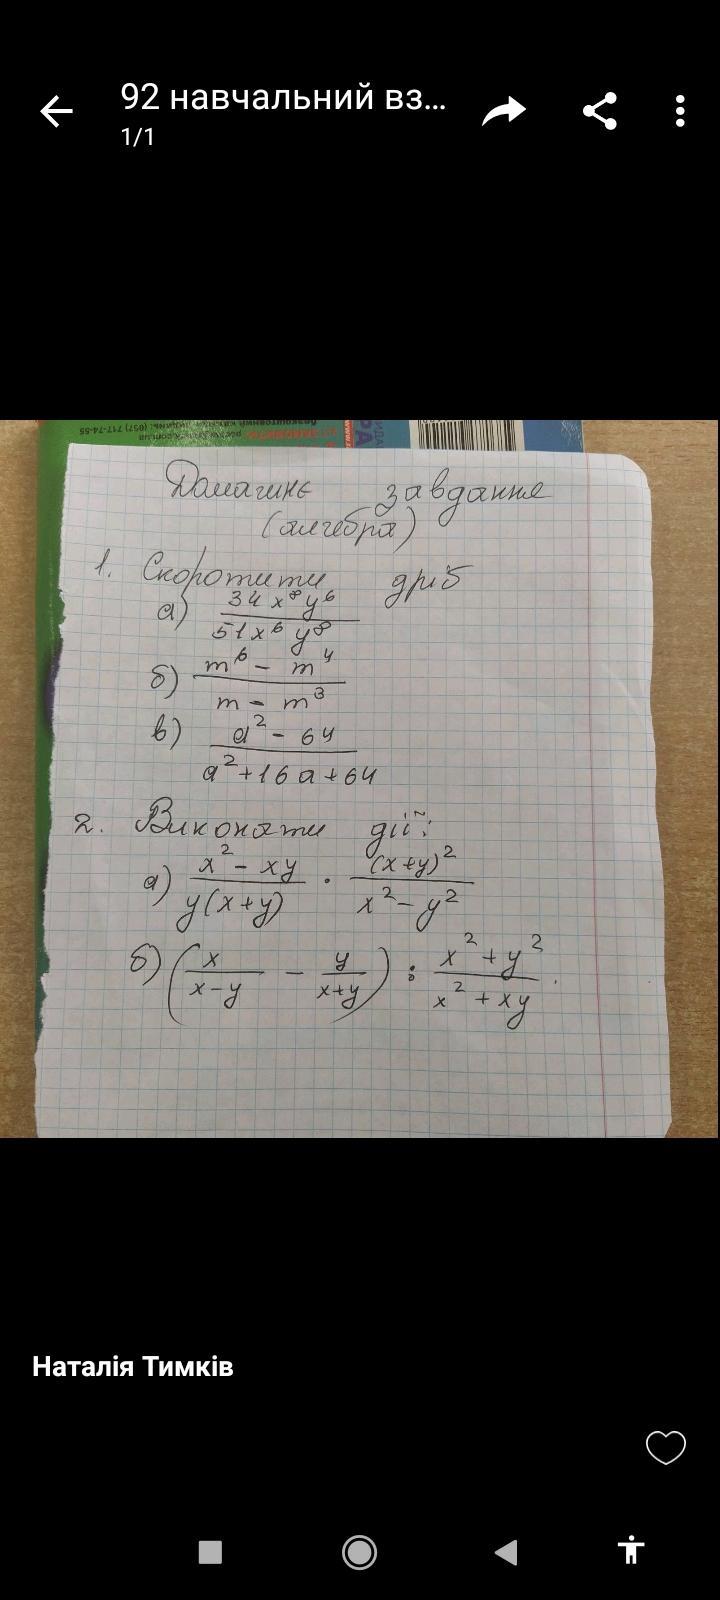 92 навчальний вз...
1/1
Домашнє завдання
(алгебра)
1. Скоротити дріб
а) 34x⁸y⁶ / 51x⁶y⁸
б) m⁶ - m⁴ / m - m³
в) a² - 64 / a² + 16a + 64
2. Виконати дії:
а) x² - xy / y(x+y) · (x+y)² / x² - y²
б) (x / x-y - y / x+y) : x² + y² / x² + xy.
Наталія Тимків